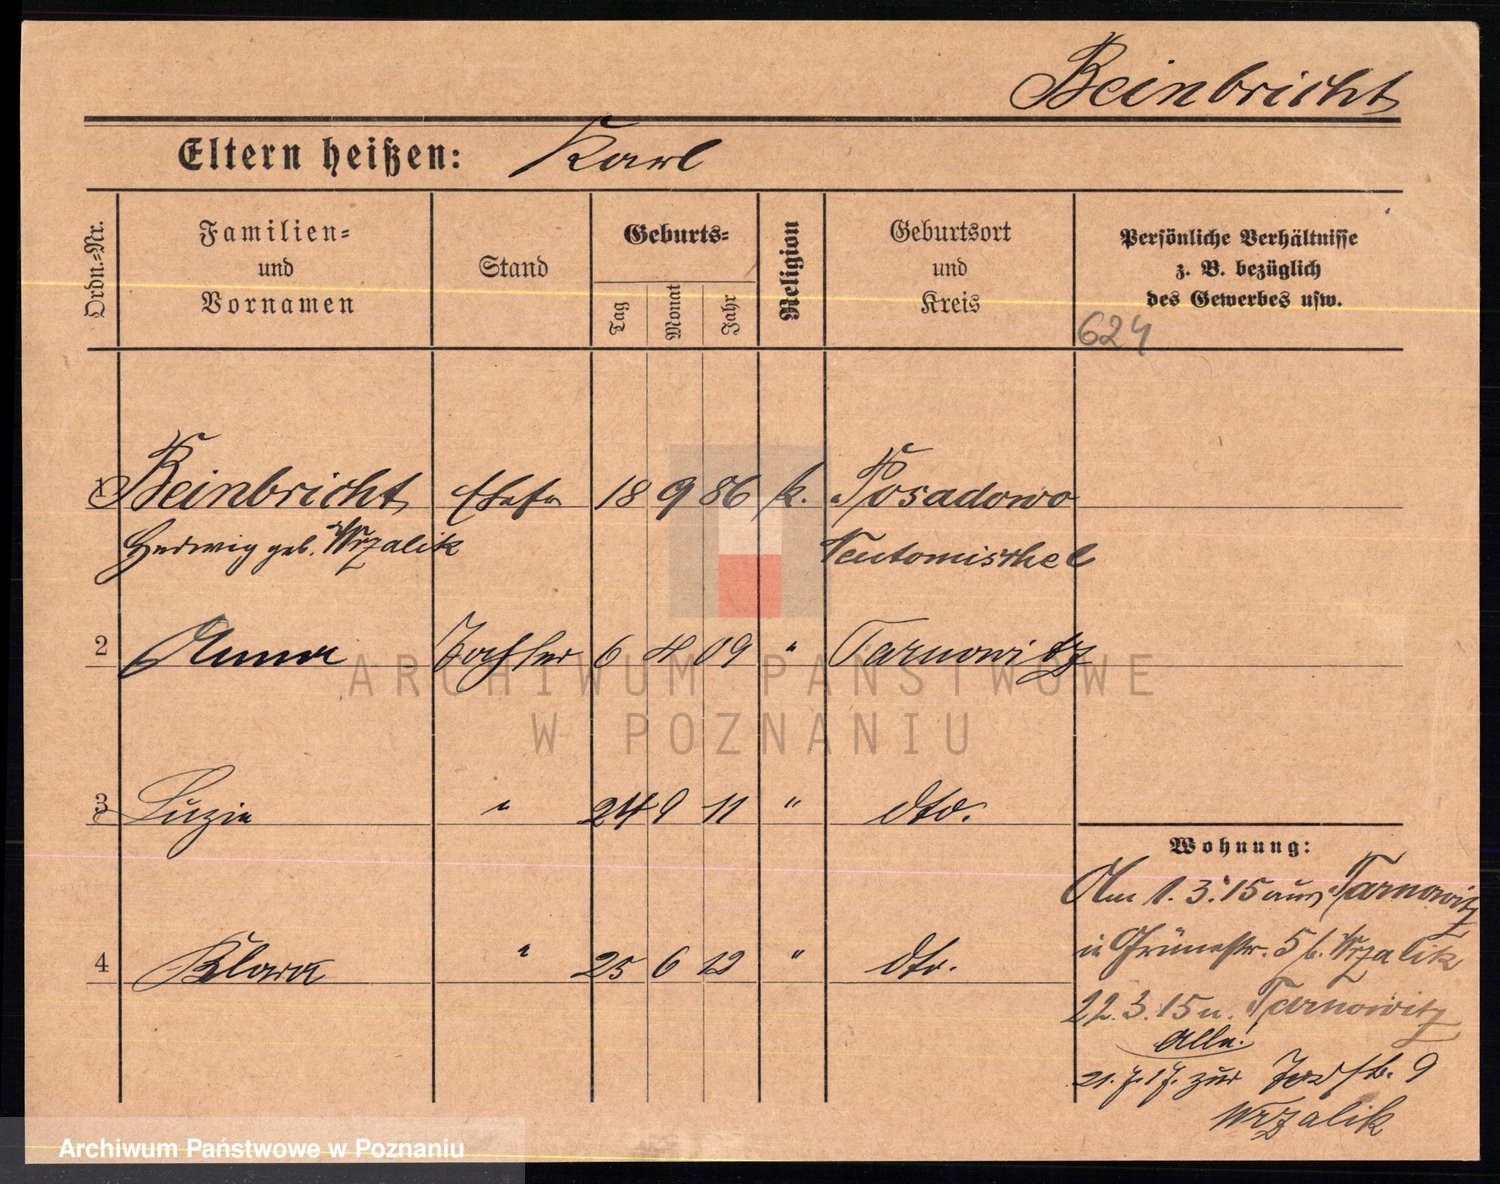 Beinbricht
Eltern heißen: Karl
Ordn.-Nr.
Familien-
und
Vornamen
Stand
Geburts-
Tag
Monat
Jahr
Religion
Geburtsort
und
Kreis
Persönliche Verhältnisse
z. B. bezüglich
des Gewerbes usw.
624
1 Beinbricht Ehefr 18 9 86 k. Posadowo
Hedwig geb. Wrzalik Neutomischel
2 Anna Tochter 6 4 09 " Tarnowitz
3 Luzie " 24 9 11 " dto.
4 Klara " 25 6 12 " dto.
Wohnung:
Am 1.3.15 aus Tarnowitz
in Grünestr. 5 b. Wrzalik
22.3.15 n. Tarnowitz
Alle!
21.7.17. zur 9
Wrzalik
ARCHIWUM PAŃSTWOWE
W POZNANIU
Archiwum Państwowe w Poznaniu